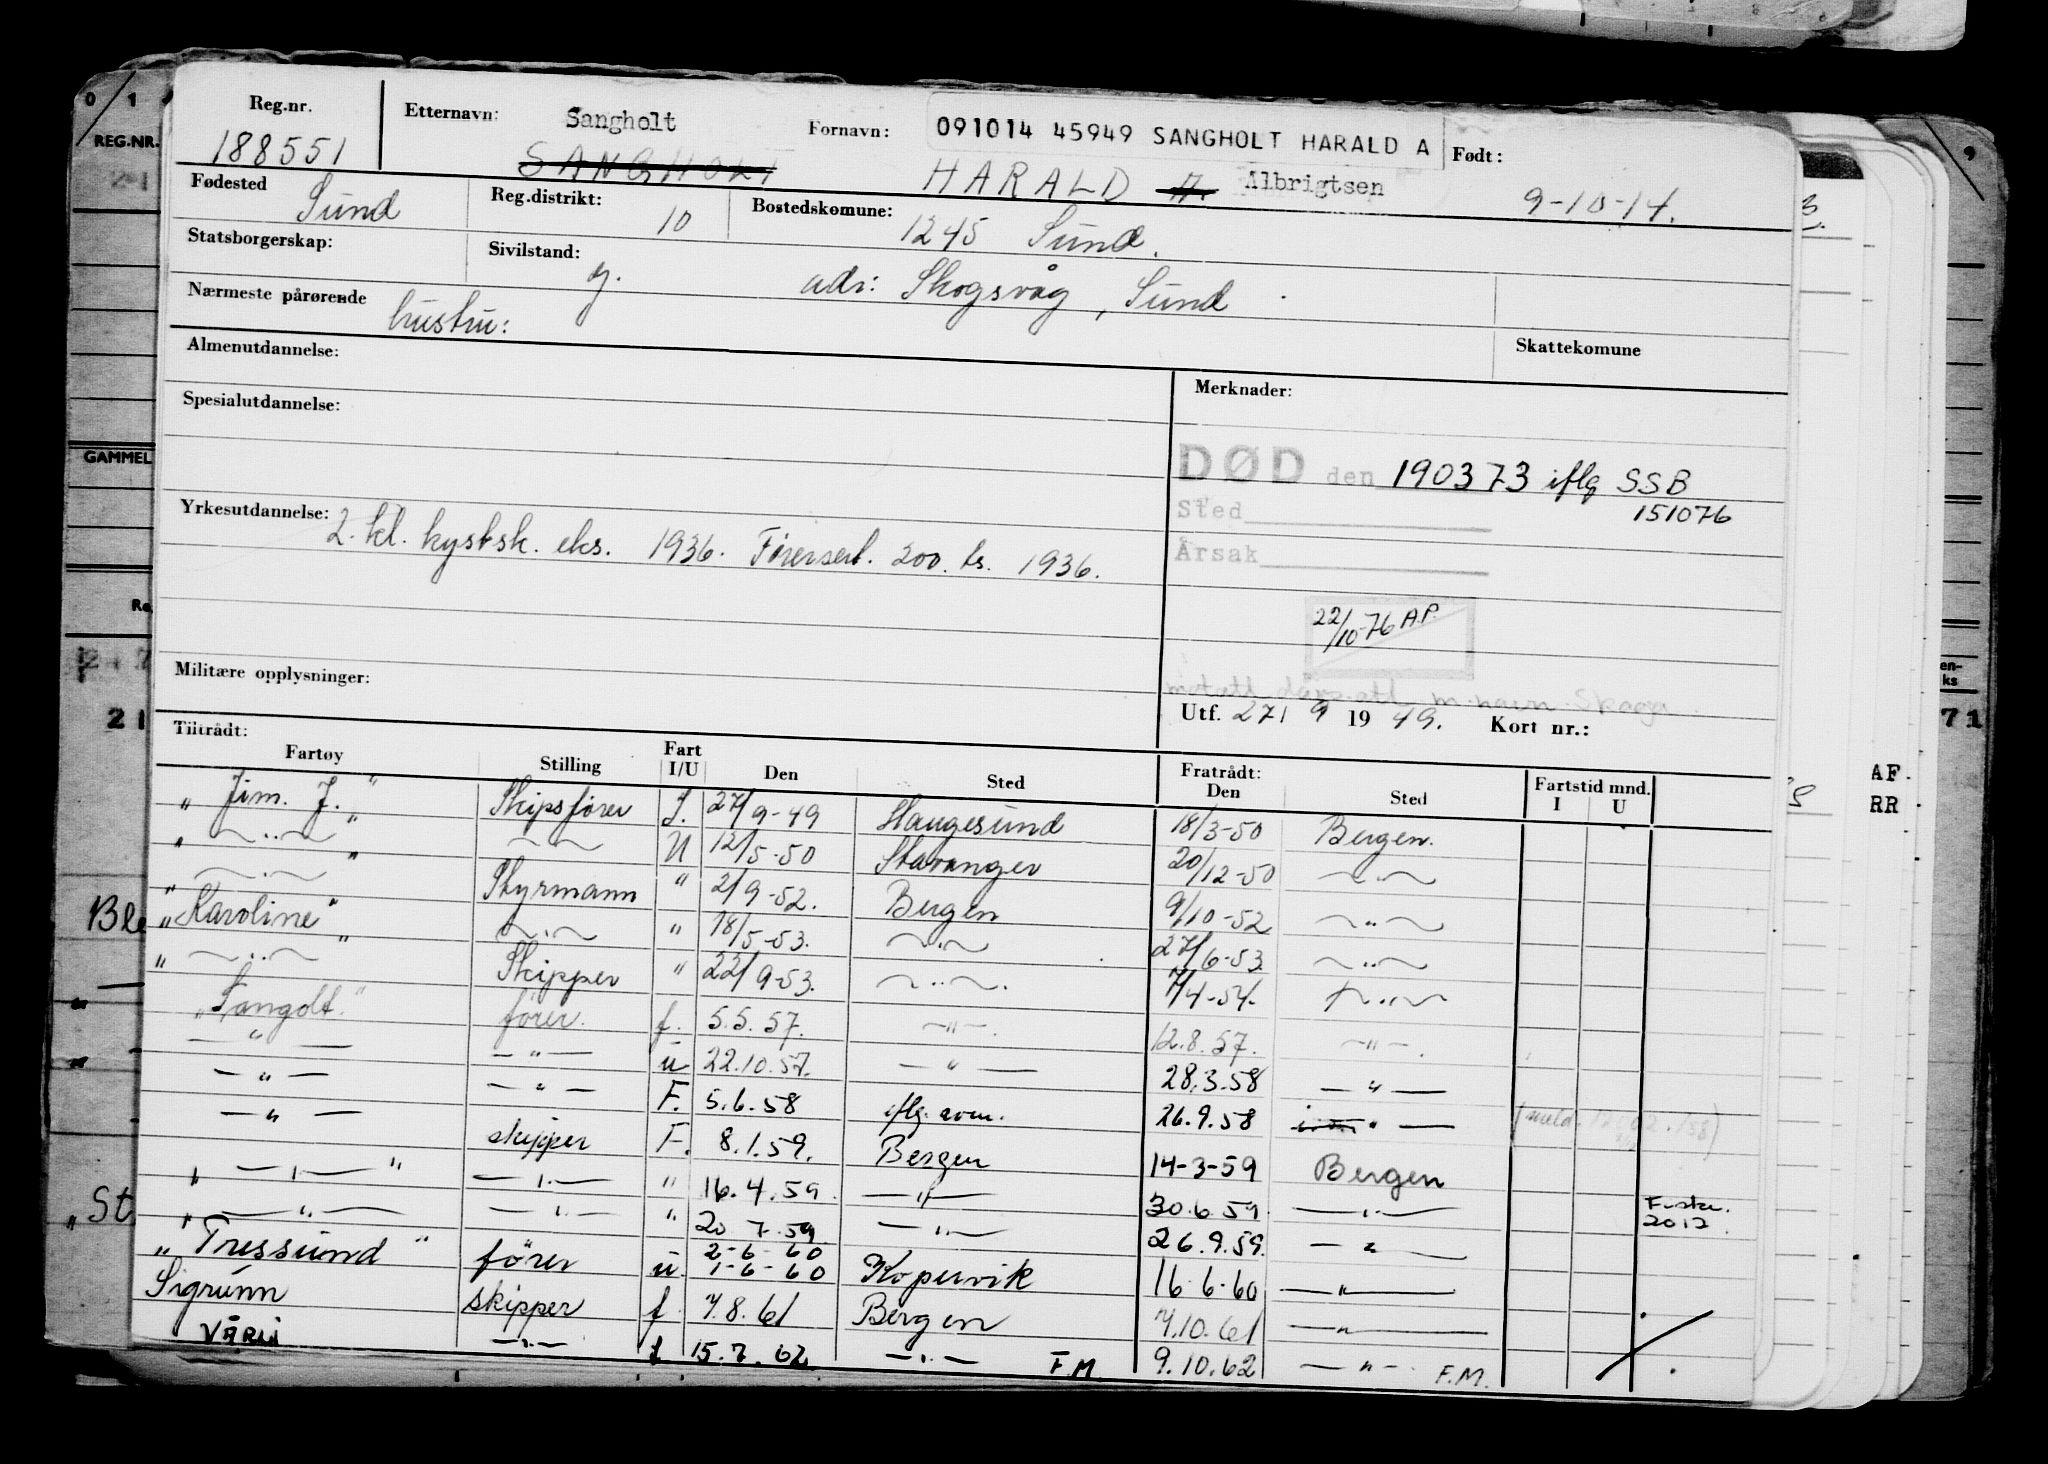 Reg.nr.
188551
Etternavn: Sangholt
SANGHOLT
Fornavn: 091014 45949 SANGHOLT HARALD A
HARALD A. Albrigtsen
Født:
9-10-14.
Fødested Sund
Reg.distrikt: 10
Bostedskomune: 1245 Sund.
Statsborgerskap:
Sivilstand: g.
adr: Skogsvåg, Sund
Nærmeste pårørende hustru:
Skattekomune
Almenutdannelse:
Merknader:
Spesialutdannelse:
DØD den 190373 iflg SSB
151076
Sted
Årsak
Yrkesutdannelse: 2. kl. kystsk. eks. 1936. Förersert. 200. ts. 1936.
22/10-76 A.P.
Militære opplysninger:
Utf. 27/ 9 1949. Kort nr.:
Tiltrådt:
Fartøy Stilling Fart I/U Den Sted Fratrådt: Den Sted Fartstid mnd. I U
" Jim. J. " Skipsförer I. 27/9-49 Haugesund 18/3-50 Bergen.
" ~..~ " ~ ~ U 12/5-50 Stavanger 20/12-50 ~..~
~..~ Styrmann " 2/9-52. Bergen 9/10-52 ~..~
" Karoline " ~..~ " 18/5-53. ~..~ 27/6-53. ~..~
" ~..~ " Skipper " 22/9-53. ~..~. 7/4-54. ~..~
" Sangolt. " förer. f. 5.5.57. —"—. 12.8.57. —"—.
— " — — " — u 22.10.57. — " — 28.3.58 — " —
— " — — " — F. 5.6.58 iflg. 26.9.58 " —
— " — skipper F. 8.1.59. Bergen 14-3-59 Bergen
" — " — " — " — " 16.4.59. — " — 30.6.59. — " —
2012
" — " — — " — " 20.7.59. — " — 26.9.59. — " —
2-6-60
" Tressund " förer u. 1-6-60 Kopervik 16.6.60 — " —
Sigrunn skipper f. 7.8.61 Bergen 7.10.61 — " —
VÅRLI — " — f 15.7.62 — " — F.M. 9.10.62 — " — F.M.
0/1
REG.NR.
GAMMEL
Re
21
Ble
" St
9
en-
ks
71
AF
RR